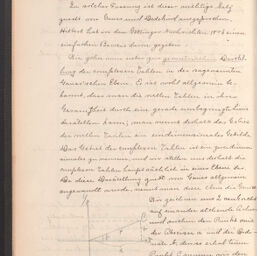 In solcher Fassung ist dieser wichtige Satz
zuerst von Gauss und Dedekind ausgesprochen.
Hilbert hat in den Göttinger Nachrichten 1896 einen
einfachen Beweis davon gegeben.
Wir gehen nun weiter zur geometrischen Darstel-
lung der complexen Zahlen in der sogenannten
Gauss'schen Ebene. Es ist wohl allgemein be-
kannt, dass man die reellen Zahlen in ihrer
Gesamtheit durch eine gerade unbegrenzte Linie
darstellen kann; man nennt deshalb das Gebiet
der reellen Zahlen ein eindimensionales Gebilde.
Das Gebiet der complexen Zahlen ist ein zweidimen-
sionales zu nennen, und wir stellen uns deshalb die
complexen Zahlen in einer Ebene dar.
Da diese Darstellung zuerst von Gauss allgemein
angewandt wurde, nennt man diese Ebene die Gauss
Wir zeichnen uns 2 senkrecht
auf einander stehende Achsen
und suchen den Punkt mit
der Abscisse a und der Ordi-
nate b, dann erhält einen
Punkt